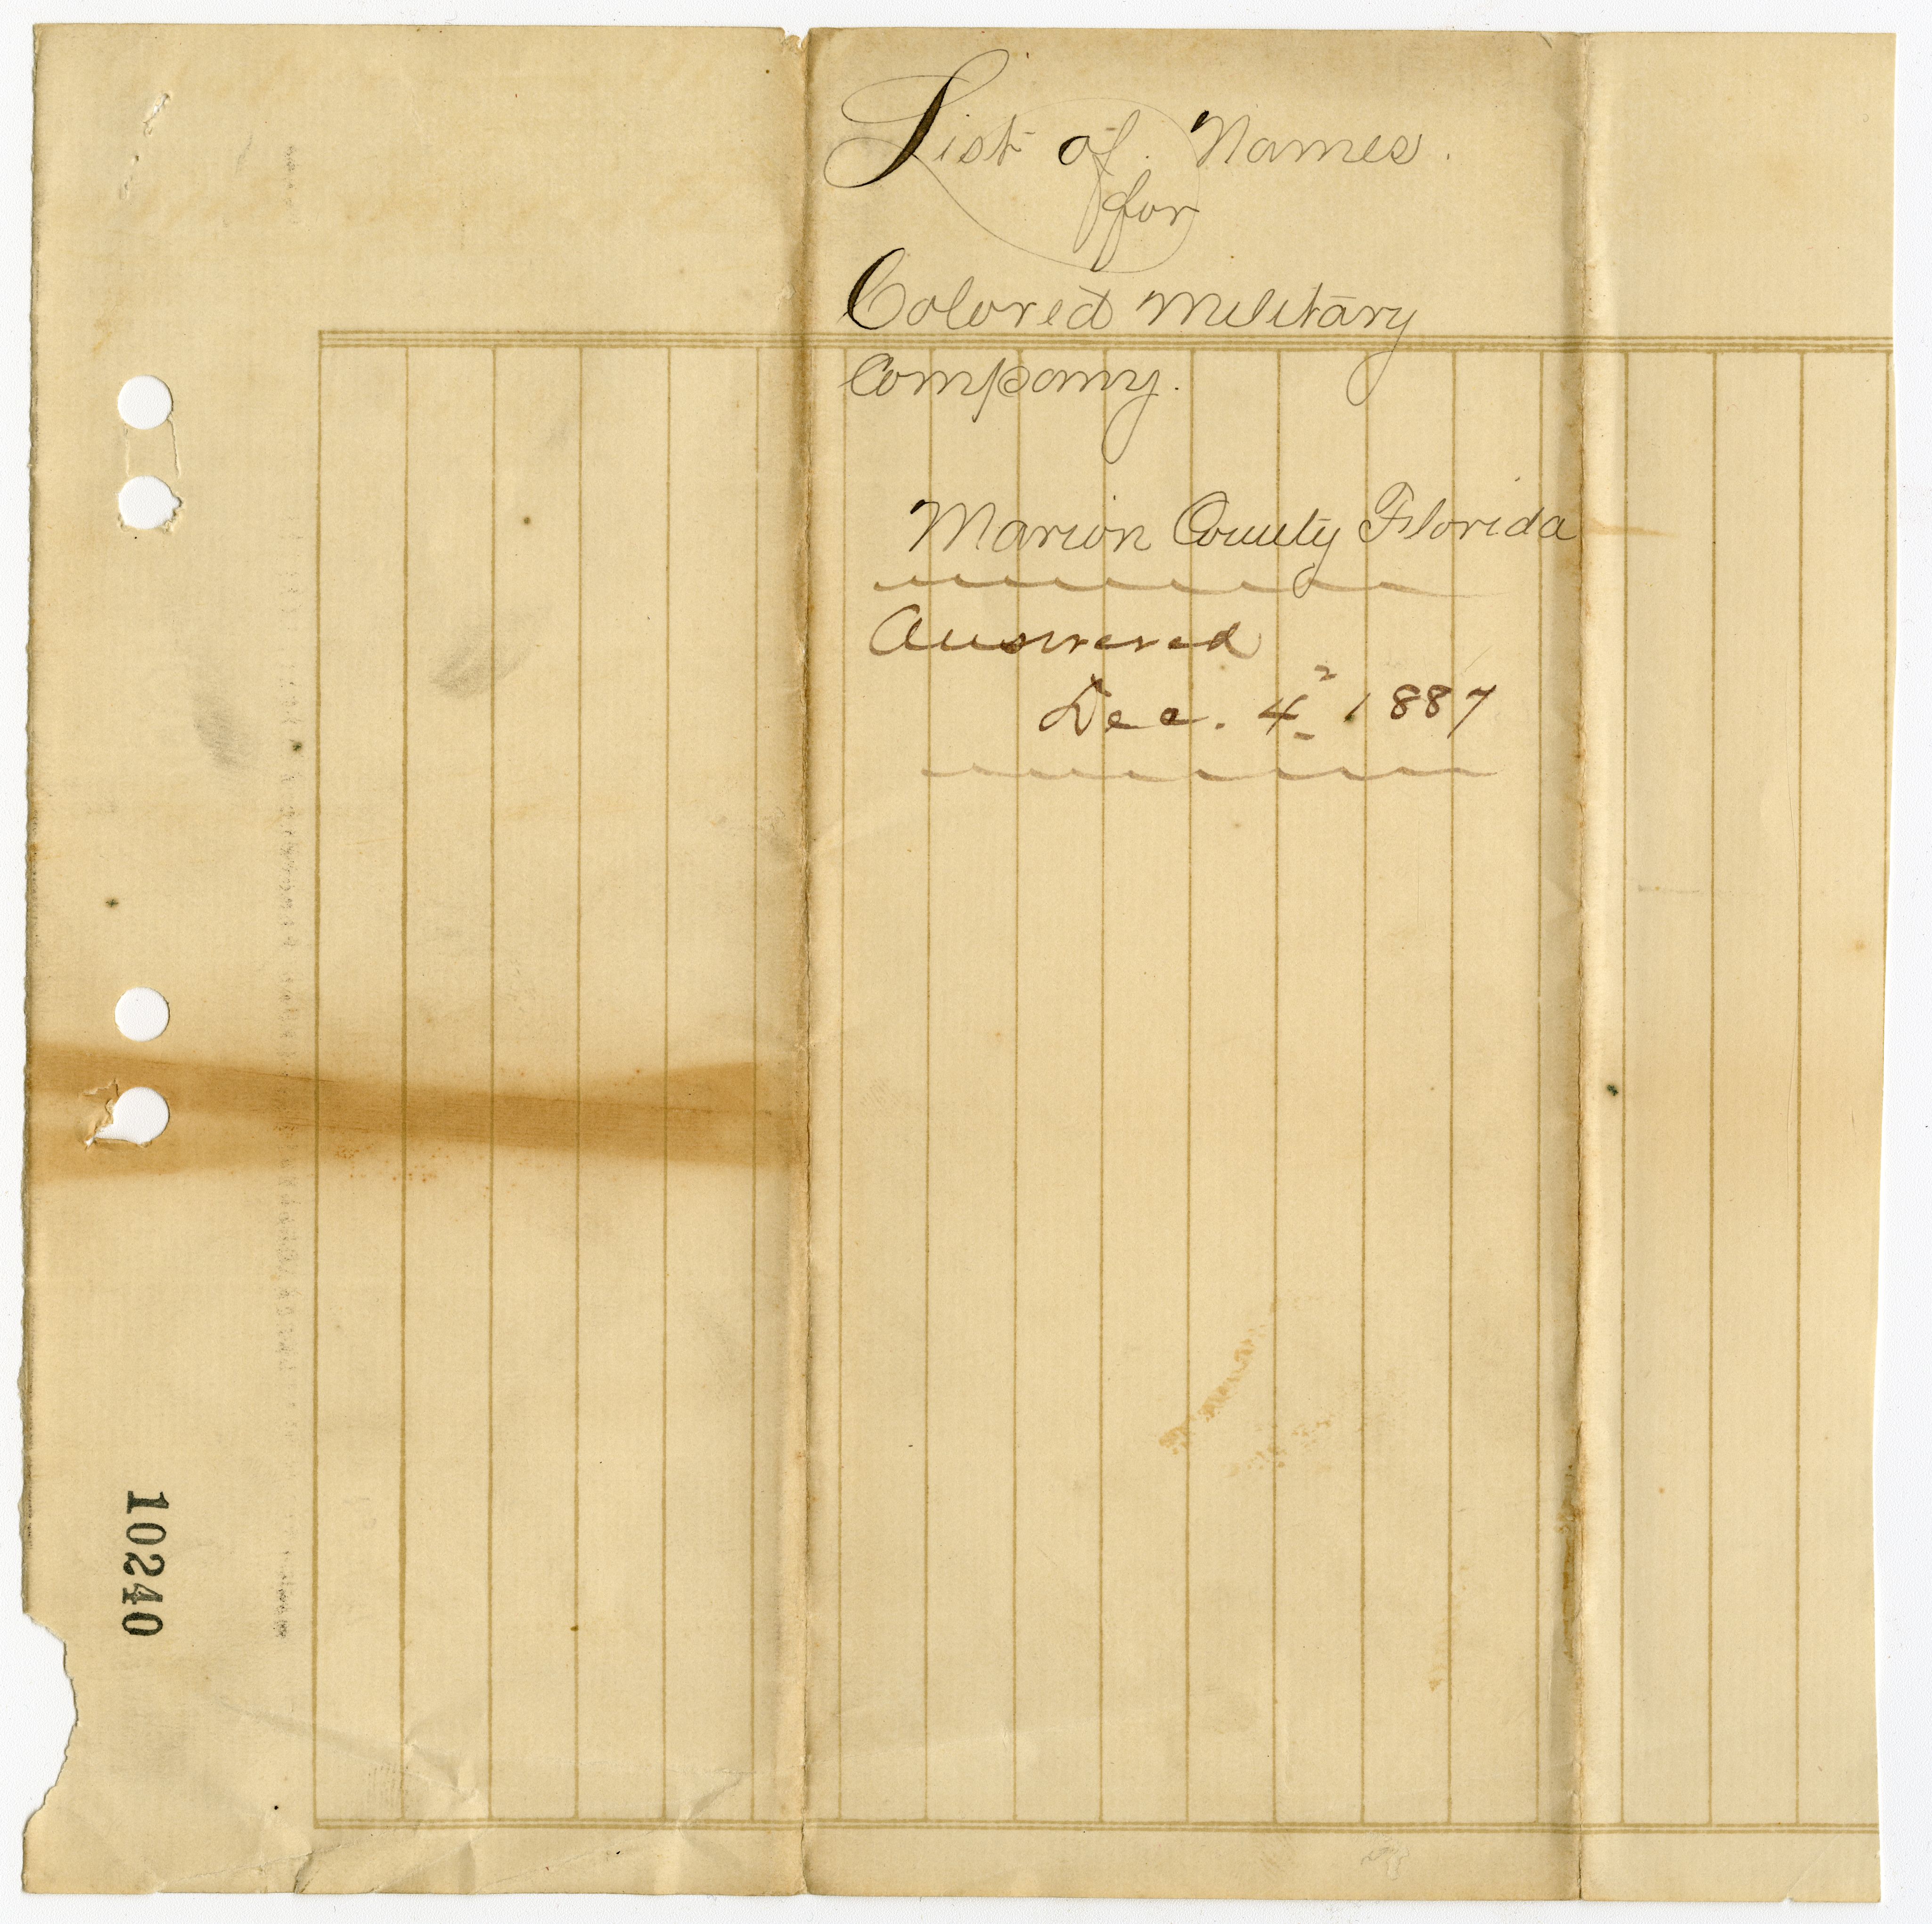 List of Names.
for
Colored Military
Company.
Marion County Florida
Answered
Dec. 4 1887
10240